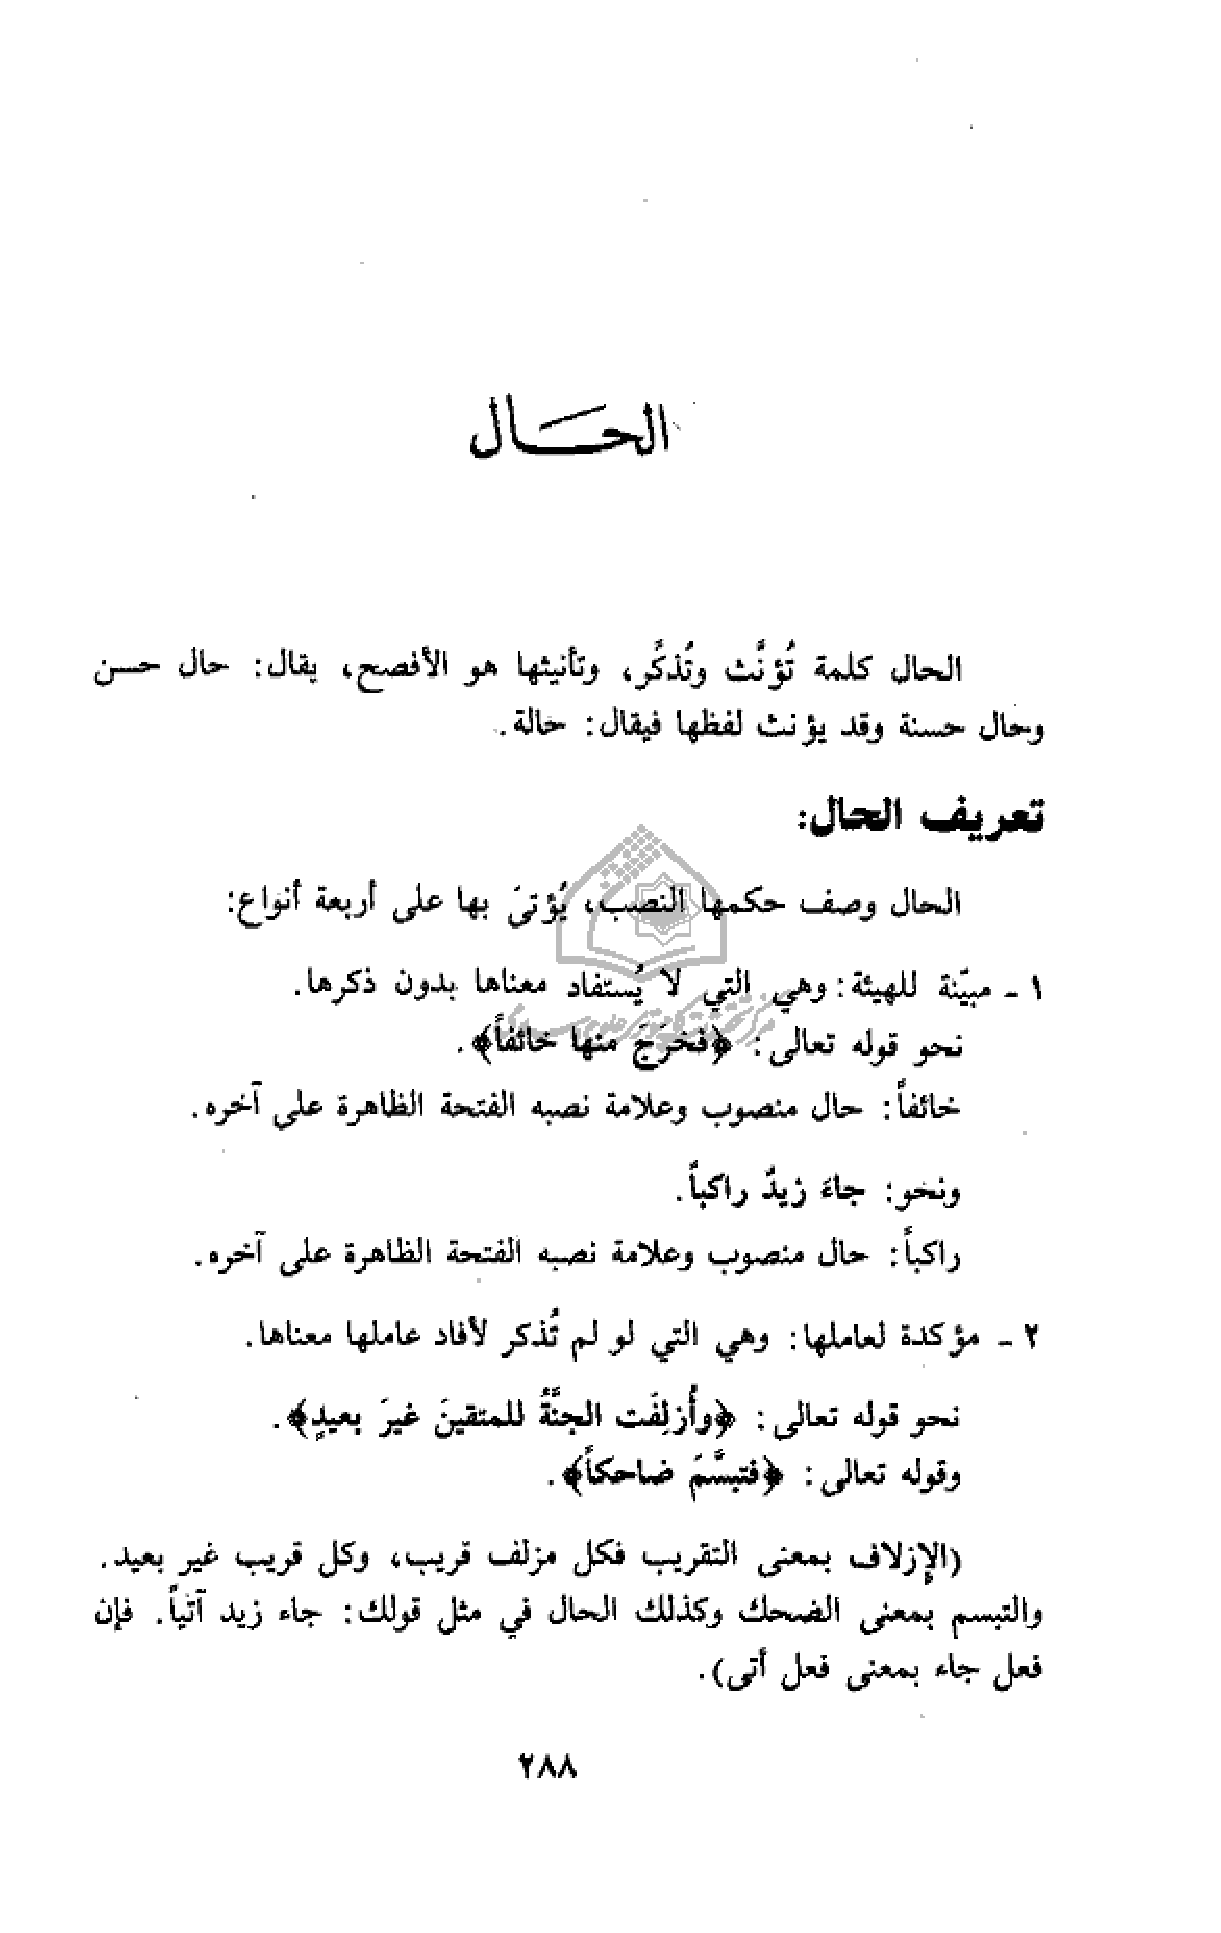 الحـــال
الحال كلمة تُؤنَّث وتُذكَّر، وتأنيثها هو الأفصح، يقال: حال حسن
وحال حسنة وقد يؤنث لفظها فيقال: حالة.
تعريف الحال:
الحال وصف حكمها النصب، يُؤتىَ بها على أربعة أنواع:
١ ـ مبيّنة للهيئة: وهي التي لا يُستفاد معناها بدون ذكرها.
نحو قوله تعالى: ﴿فخرَجَ منها خائفاً﴾.
خائفاً: حال منصوب وعلامة نصبه الفتحة الظاهرة على آخره.
ونحو: جاءَ زيدٌ راكباً.
راكباً: حال منصوب وعلامة نصبه الفتحة الظاهرة على آخره.
٢ ـ مؤكدة لعاملها: وهي التي لو لم تُذكر لأفاد عاملها معناها.
نحو قوله تعالى: ﴿وأُزلِفَت الجنَّةُ للمتقينَ غيرَ بعيدٍ﴾.
وقوله تعالى: ﴿فتبسَّمَ ضاحكاً﴾.
(الإزلاف بمعنى التقريب فكل مزلف قريب، وكل قريب غير بعيد.
والتبسم بمعنى الضحك وكذلك الحال في مثل قولك: جاء زيد آتياً. فإن
فعل جاء بمعنى فعل أتى).
٢٨٨